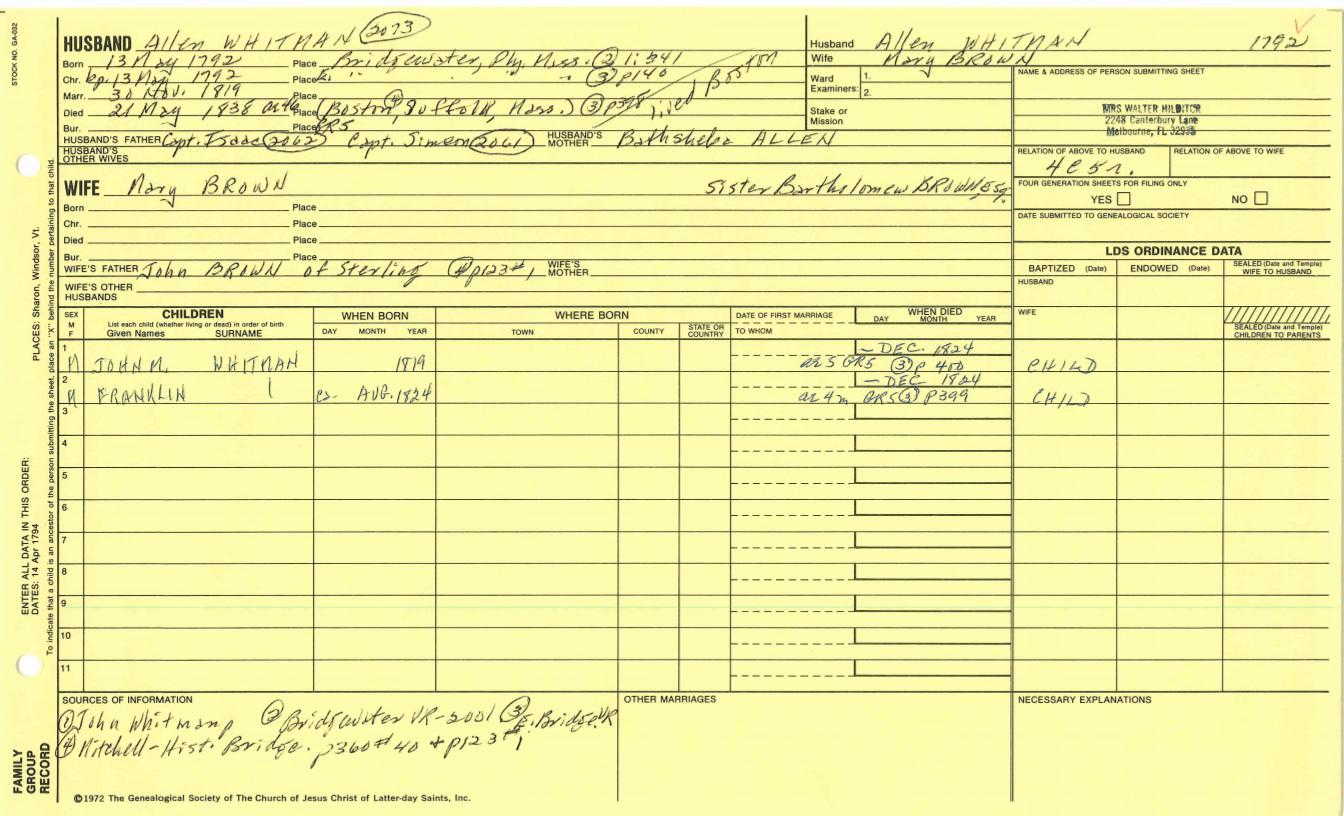 STOCK NO. GA-002
HUSBAND Allen WHITMAN 2073
Born 13 May 1792 Place Bridgewater, Ply, Mass. ② 1:341
Chr. bp. 13 May 1792 Place E. " " " ③ p140
Marr. 30 Nov. 1819 Place
Died 21 May 1838 Place (Boston, Suffolk, Mass.) ③ p398 lived Boston
④
Bur. Place GR5
HUSBAND'S FATHER Capt. Isaac 2062 Capt. Simeon 2061 HUSBAND'S MOTHER Bathsheba ALLEN
HUSBAND'S OTHER WIVES
Husband Allen WHITMAN 1792
Wife Mary BROWN
Ward Examiners: 1.
2.
Stake or Mission
NAME & ADDRESS OF PERSON SUBMITTING SHEET
MRS WALTER HILDITCH
2248 Canterbury Lane
Melbourne, FL 32935
RELATION OF ABOVE TO HUSBAND RELATION OF ABOVE TO WIFE
4C5r.
FOUR GENERATION SHEETS FOR FILING ONLY
YES NO
DATE SUBMITTED TO GENEALOGICAL SOCIETY
WIFE Mary BROWN Sister Bartholomew BROWN, Esq.
Born Place
Chr. Place
Died Place
Bur. Place
WIFE'S FATHER John BROWN of Sterling ④ p123#1 WIFE'S MOTHER
WIFE'S OTHER HUSBANDS
LDS ORDINANCE DATA
BAPTIZED (Date) ENDOWED (Date) SEALED (Date and Temple) WIFE TO HUSBAND
HUSBAND
WIFE
SEALED (Date and Temple) CHILDREN TO PARENTS
SEX M F
CHILDREN
List each child (whether living or dead) in order of birth
Given Names SURNAME
WHEN BORN
DAY MONTH YEAR
WHERE BORN
TOWN COUNTY STATE OR COUNTRY
DATE OF FIRST MARRIAGE
TO WHOM
WHEN DIED
DAY MONTH YEAR
1 — DEC. 1824
M JOHN M. WHITMAN 1819 ae 5 GR5 ③ p 400 CHILD
2 — DEC 1824
M FRANKLIN | ca- AUG. 1824 ae 4m GR5 ③ P399 CHILD
3
4
5
6
7
8
9
10
11
SOURCES OF INFORMATION
① John Whitman p ② Bridgewater VR-2001 ③ E. Bridge. VR
④ Mitchell-Hist. Bridge. p360 #40 + p123 #1
OTHER MARRIAGES
NECESSARY EXPLANATIONS
©1972 The Genealogical Society of The Church of Jesus Christ of Latter-day Saints, Inc.
FAMILY GROUP RECORD
ENTER ALL DATA IN THIS ORDER:
DATES: 14 Apr 1794
PLACES: Sharon, Windsor, Vt.
To indicate that a child is an ancestor of the person submitting the sheet, place an "X" behind the number pertaining to that child.